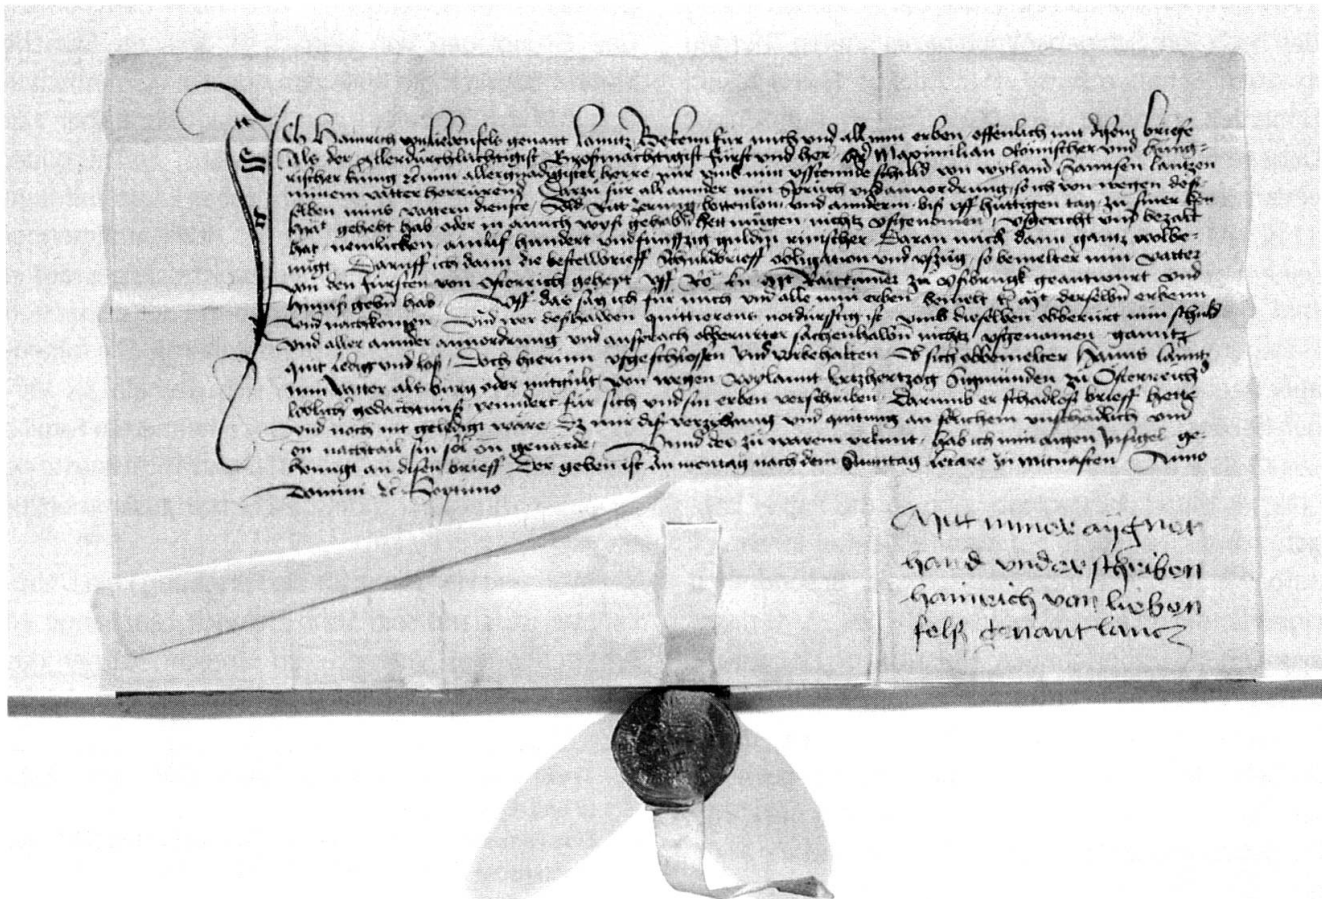 Ich Hainrich von Liebenfels genant Lanntz Bekenn für mich und all min erben offenlich mit disem brieffe
Als der Allerdurchlüchtigist Großmächtigist Fürst und her her Maximilian Römischer und Hung-
rischer küng etc min allergnädigister herre mir umb min usstennde schuld von wyland Hannsen Lantzen
minem vatter herrürend Darzu für all annder min Spruch und anvordrung so ich von wegen des-
selben mins vattern dienste Sold Ritt zerung bottenlon und anderm bis uff hüttigen tag zu siner kün
Mayt gehebt hab oder in ainich wyß gehaben hett mügen nichtz ußgenomen ußgericht und bezalt
hat nemlichen ainlif hundert und fünffzig guldin rinischer Daran mich dann gantz wolbe-
nügt Daruff ich dann die bestellbrieff Schuldbrieff obligation und ußzüg so bemelter min vatter
von den fürsten von Österrich gehept uff Rö kü Mayt Raittcamer zu Ynsbrugk geantwurt und
hinuß geben hab Uff das sag ich für mich und alle min erben bemelt kü Mayt derselben erben
und nachkomen und wer deßhalben quittierens notdürfftig ist umb dieselben obberürt min schuld
und aller annder anvordrung und ansprach obberürter sachenhalben nichtz ußgenomen ganntz
quit ledig und loß Doch hierinn ußgeschlossen und vorbehalten Ob sich obbemelter Hanns Lanntz
min Vatter als bürg oder mitgült von wegen Wylannt Ertzhertzog Sigmunden zu Österreich
loblicher gedächtnuß yenndert für sich und sin erben verschriben Darumb er schadloß brieff hette
und noch nit geledigt wäre Dz mir diß verzyhung und quitung an sölichem unschädlich und
on nachtail sin sol on geuärde Unnd des zu warem urkunt hab ich min aigen Insigel ge-
henngt an disen brieff Der geben ist An mentag nach dem Sunntag Letare zu Mitvasten Anno
Domini etc Septimo
Mitt miner aÿgner
hand underschriben
hainrich von lieben
felß genant lancz